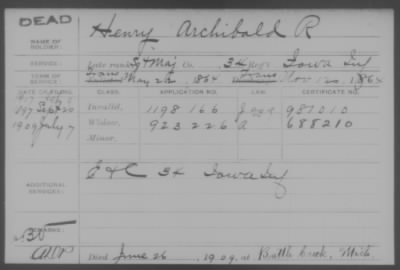 DEAD
Henry Archibald R
NAME OF SOLDIER:
SERVICE: Late rank, Sgt Maj Co. 34 Reg't Iowa Inf
TERM OF SERVICE: Trans May 26, 1864 Trans Nov 120, 1864
DATE OF FILING. CLASS. APPLICATION NO. LAW. CERTIFICATE NO.
1897 Sept 20 Invalid, 1198 166 987010
1909 July 7 Widow, 923 226 A 688210
Minor,
ADDITIONAL SERVICES: E & C 34 Iowa Inf
REMARKS:
Died June 26, 1909, at Battle Creek, Mich.